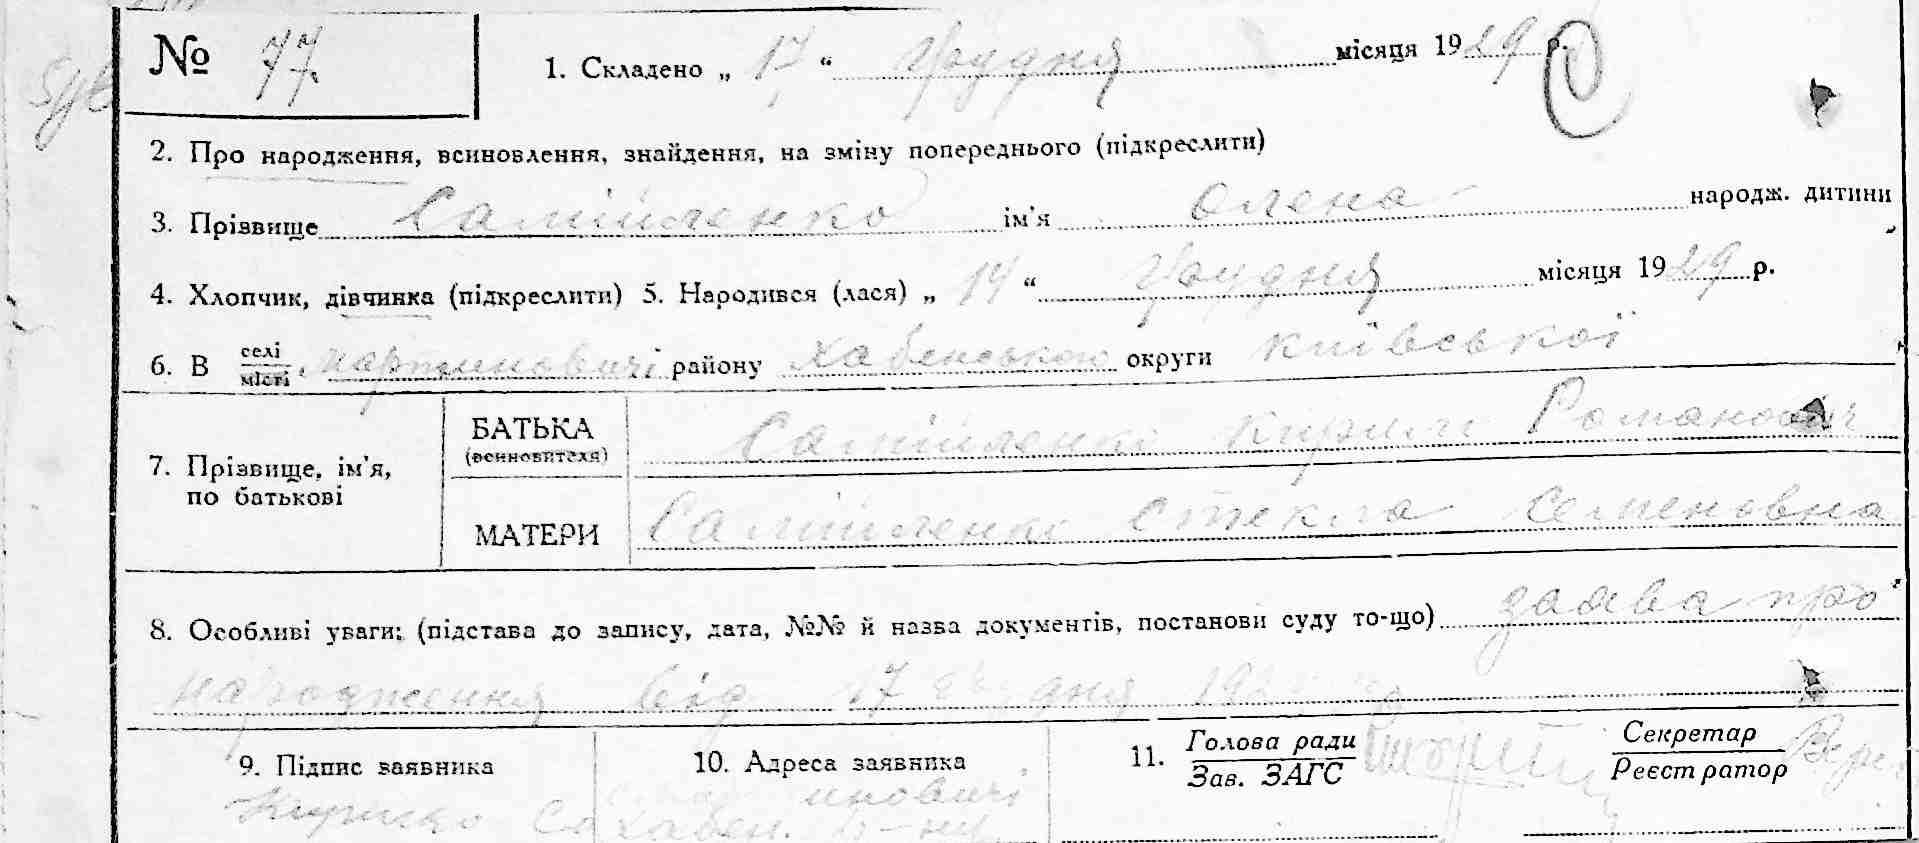 № 77
1. Складено „ 17 “ Грудня місяця 1929 р.
2. Про народження, всиновлення, знайдення, на зміну попереднього (підкреслити)
3. Прізвище Самійленко ім'я Олена народж. дитини
4. Хлопчик, дівчинка (підкреслити) 5. Народився (лася) „ 14 “ Грудня місяця 1929 р.
6. В селі/місті Мартиновичі району Хабенського округи Київської
7. Прізвище, ім'я, по батькові
БАТЬКА (всиновителя) Самійленко Кирило Романович
МАТЕРИ Самійленко Стекла Семеновна
8. Особливі уваги: (підстава до запису, дата, №№ й назва документів, постанови суду то-що) заява про
народження від 17 грудня
9. Підпис заявника
Кирило
10. Адреса заявника
иновичі
Хабен. р-ну
11. Голова ради / Зав. ЗАГС
Секретар / Реєстратор